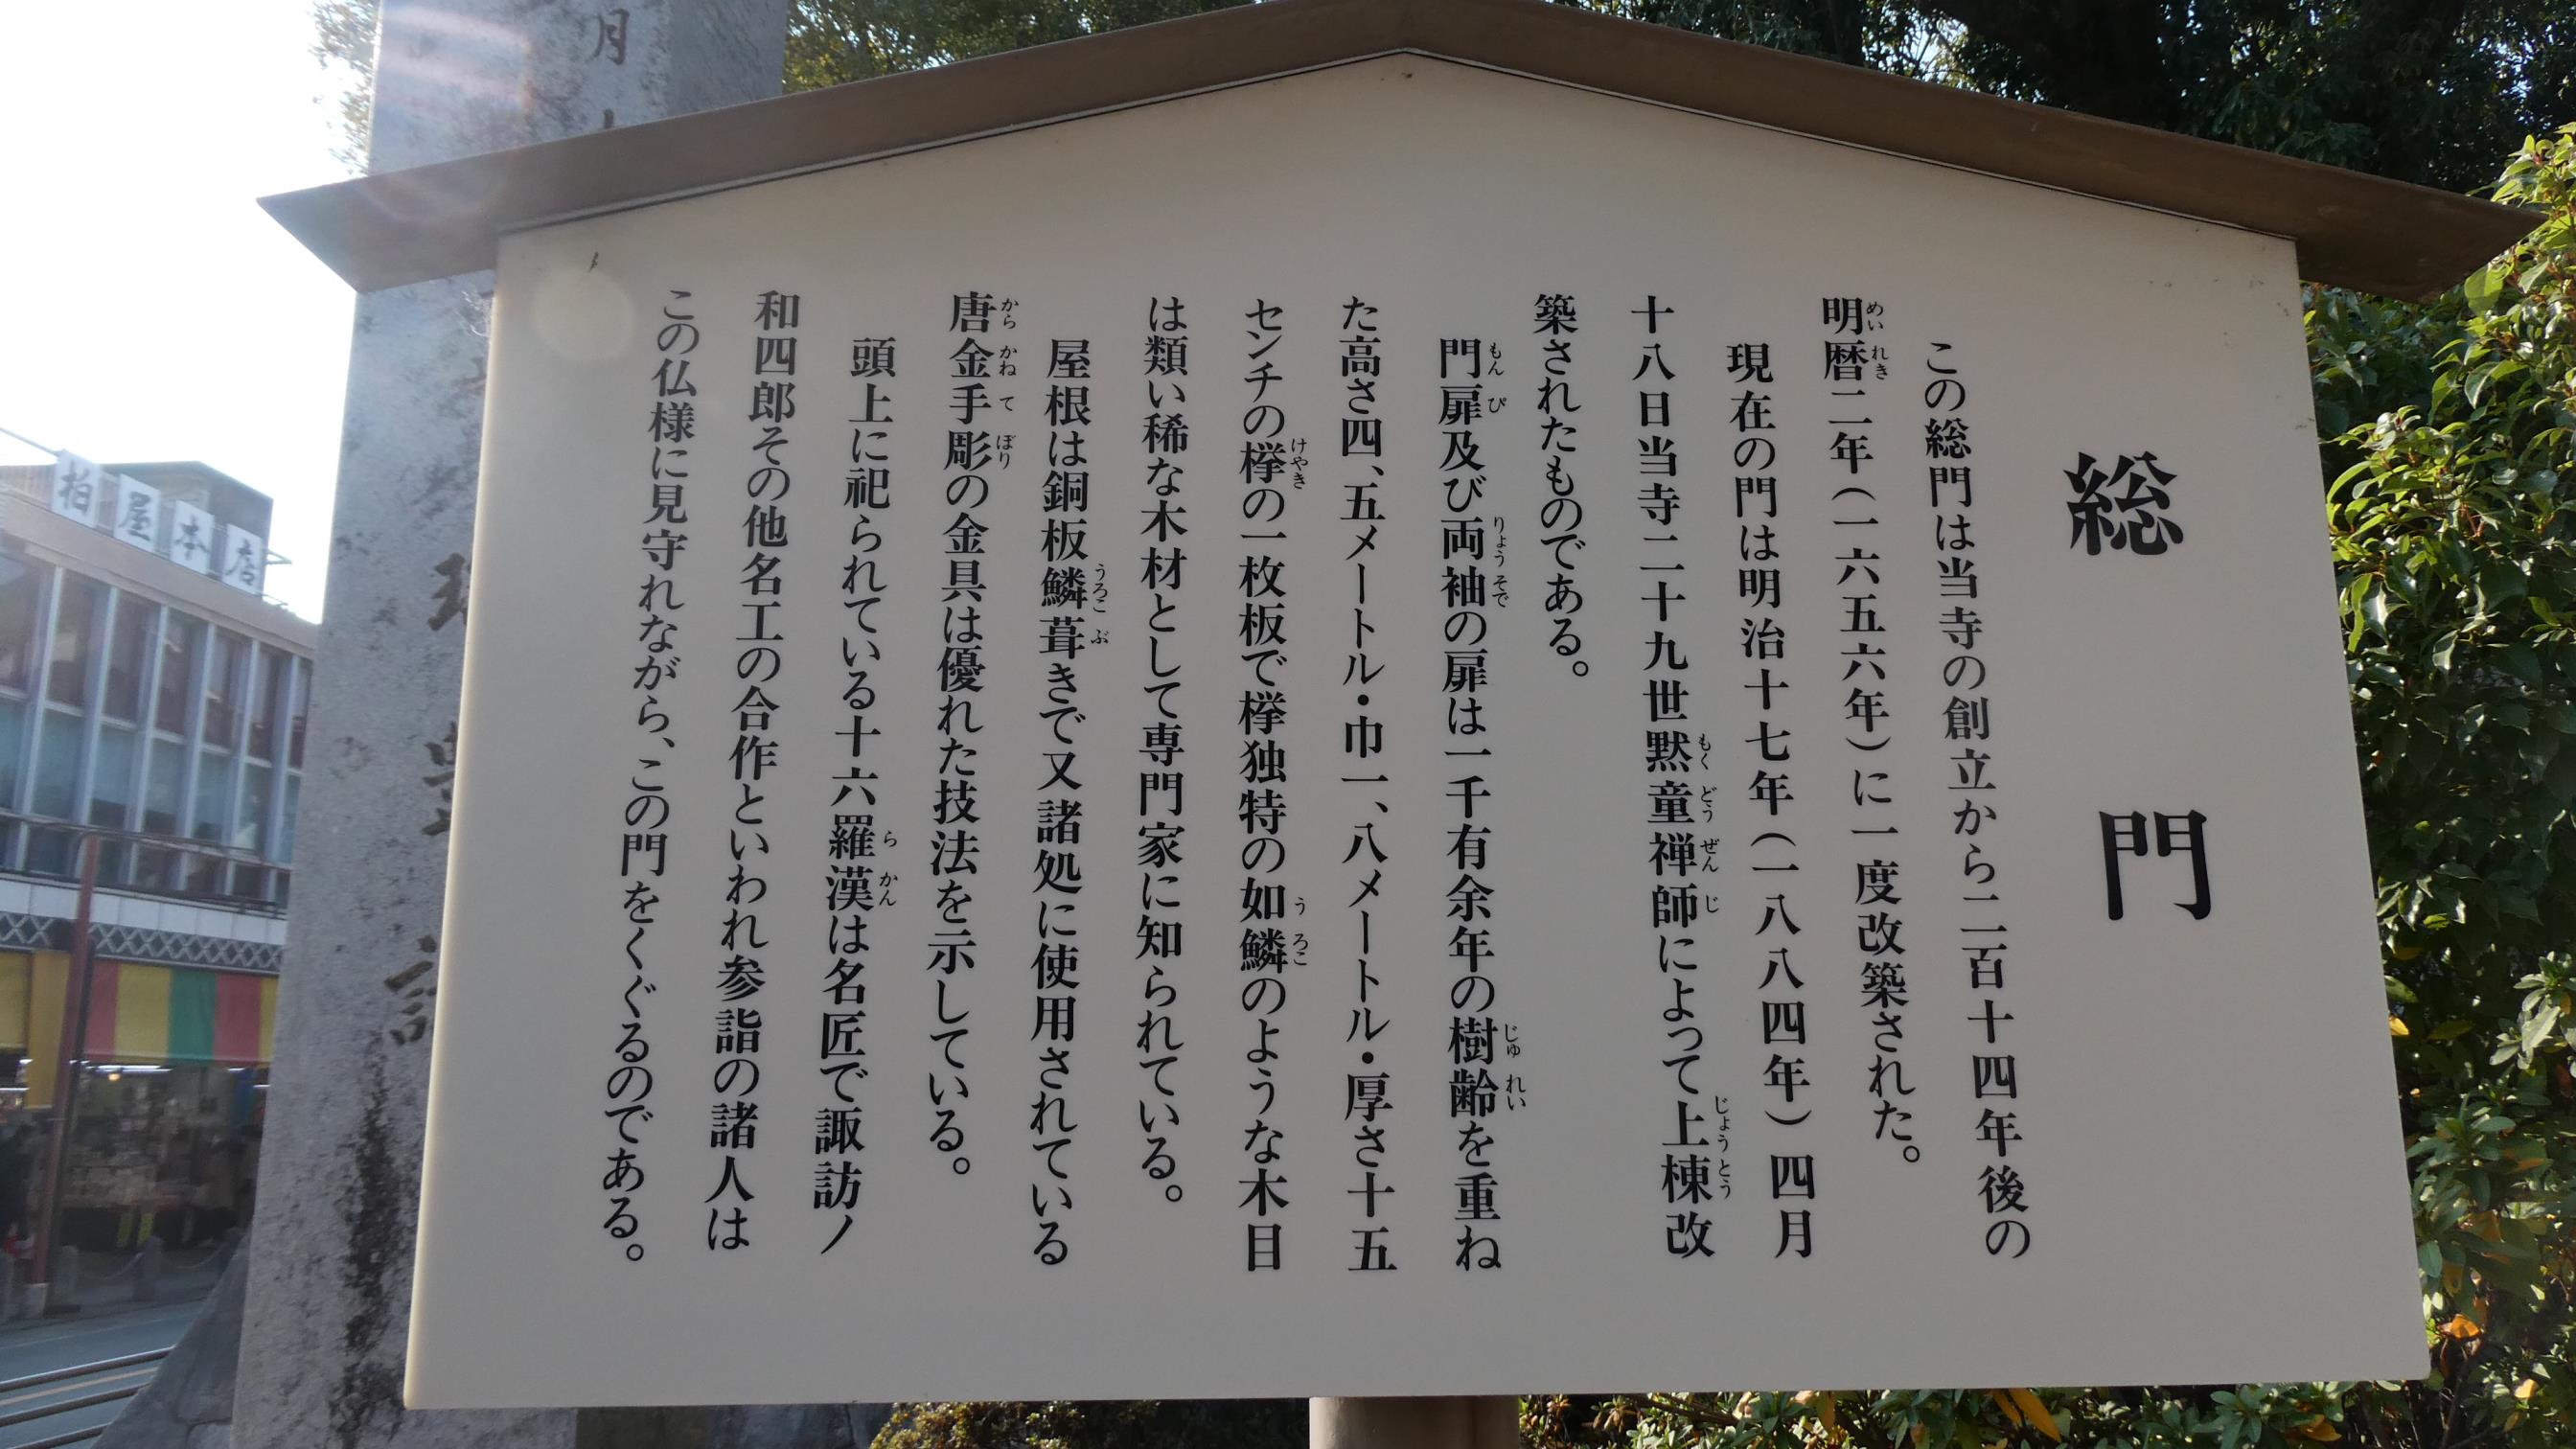 総門
この総門は当寺の創立から二百十四年後の
明暦二年(一六五六年)に一度改築された。
現在の門は明治十七年(一八八四年)四月
十八日当寺二十九世黙童禅師によって上棟改
築されたものである。
門扉及び両袖の扉は一千有余年の樹齢を重ね
た高さ四、五メートル・巾一、八メートル・厚さ十五
センチの欅の一枚板で欅独特の如鱗のような木目
は類い稀な木材として専門家に知られている。
屋根は銅板鱗葺きで又諸処に使用されている
唐金手彫の金具は優れた技法を示している。
頭上に祀られている十六羅漢は名匠で諏訪ノ
和四郎その他名工の合作といわれ参詣の諸人は
この仏様に見守れながら、この門をくぐるのである。
めいれき
もくどうぜんじ
じょうとう
もんぴ
りょうそで
じゅれい
けやき
うろこ
うろこぶ
からかねてぼり
らかん
月
柏屋本店